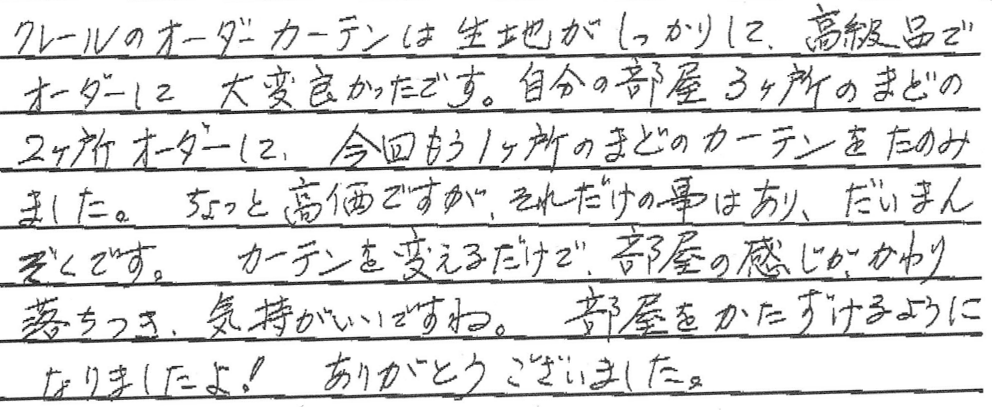 クレールのオーダーカーテンは生地がしっかりして、高級品で
オーダーして 大変良かったです。自分の部屋3ヶ所のまどの
2ヶ所オーダーして、今回もう1ヶ所のまどのカーテンをたのみ
ました。 ちょっと高価ですが、それだけの事はあり、だいまん
ぞくです。 カーテンを変えるだけで、部屋の感じが、かわり
落ちつき、気持がいいですね。 部屋をかたずけるように
なりましたよ! ありがとうございました。